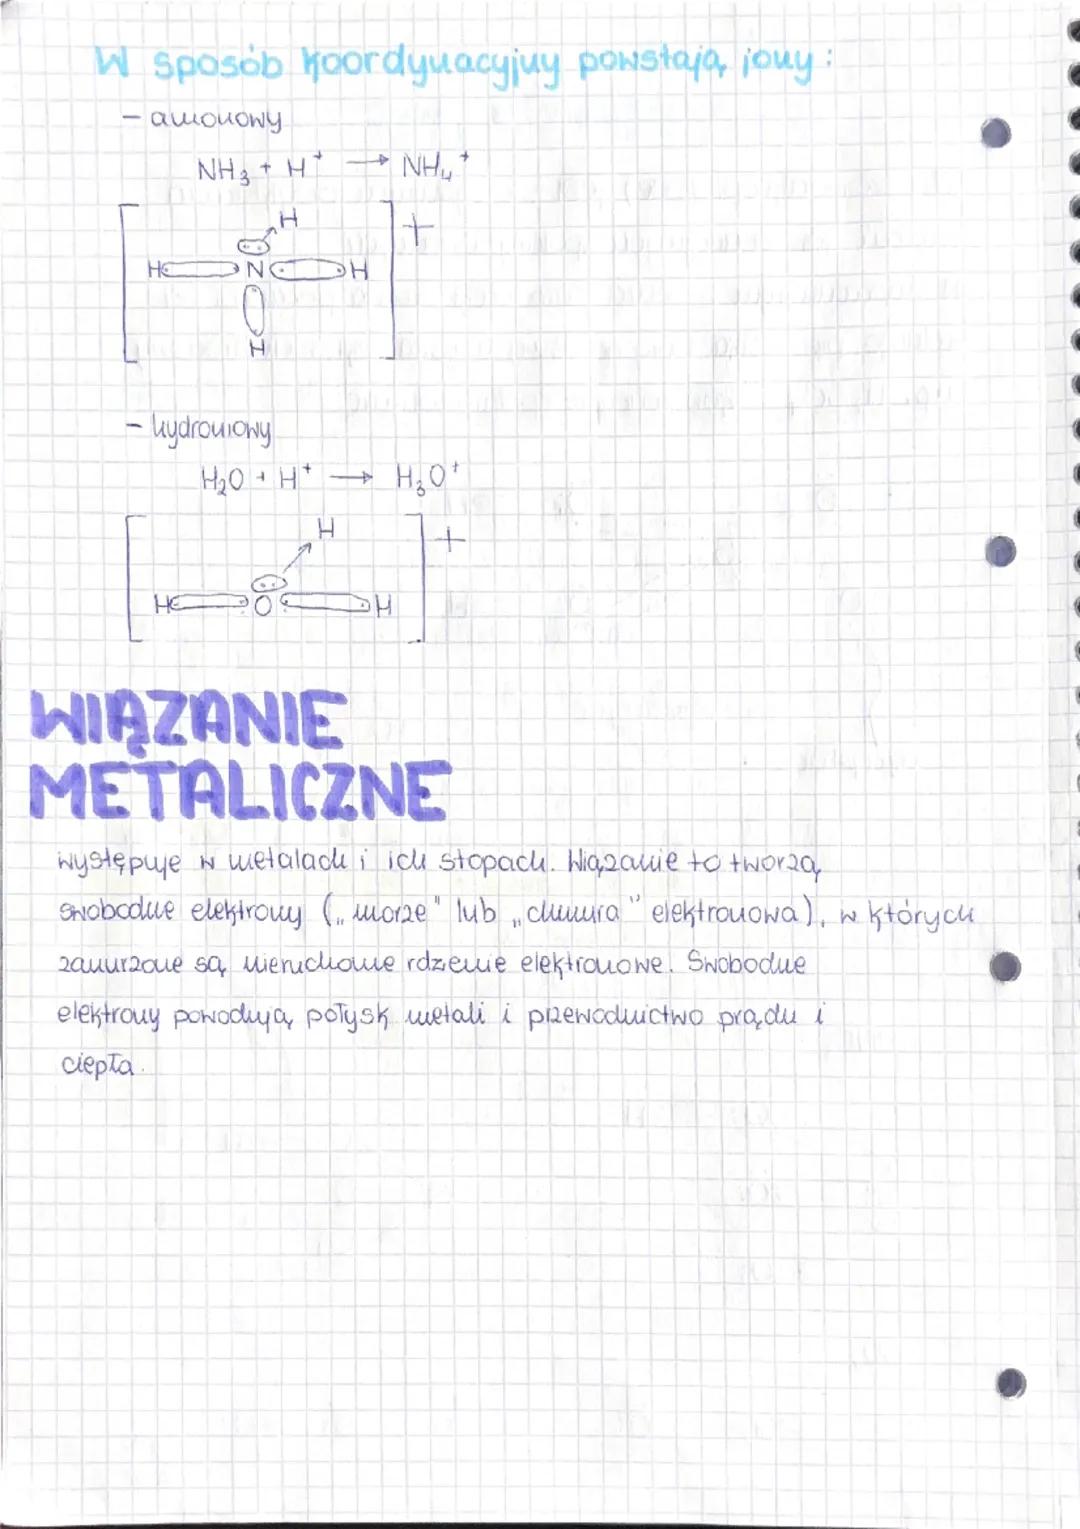 W sposób koordynacyjny powstają jony:
- amonowy
NH₃ + H⁺ → NH₄⁺
H
+
H N H
H
- hydroniowy
H₂O + H⁺ → H₃O⁺
H
+
H O H
WIĄZANIE
METALICZNE
występuje w metalach i ich stopach. Wiązanie to tworzą
swobodne elektrony („morze" lub „chmura" elektronowa), w których
zanurzone są nieruchome rdzenie elektronowe. Swobodne
elektrony powodują połysk metali i przewodnictwo prądu i
ciepła.